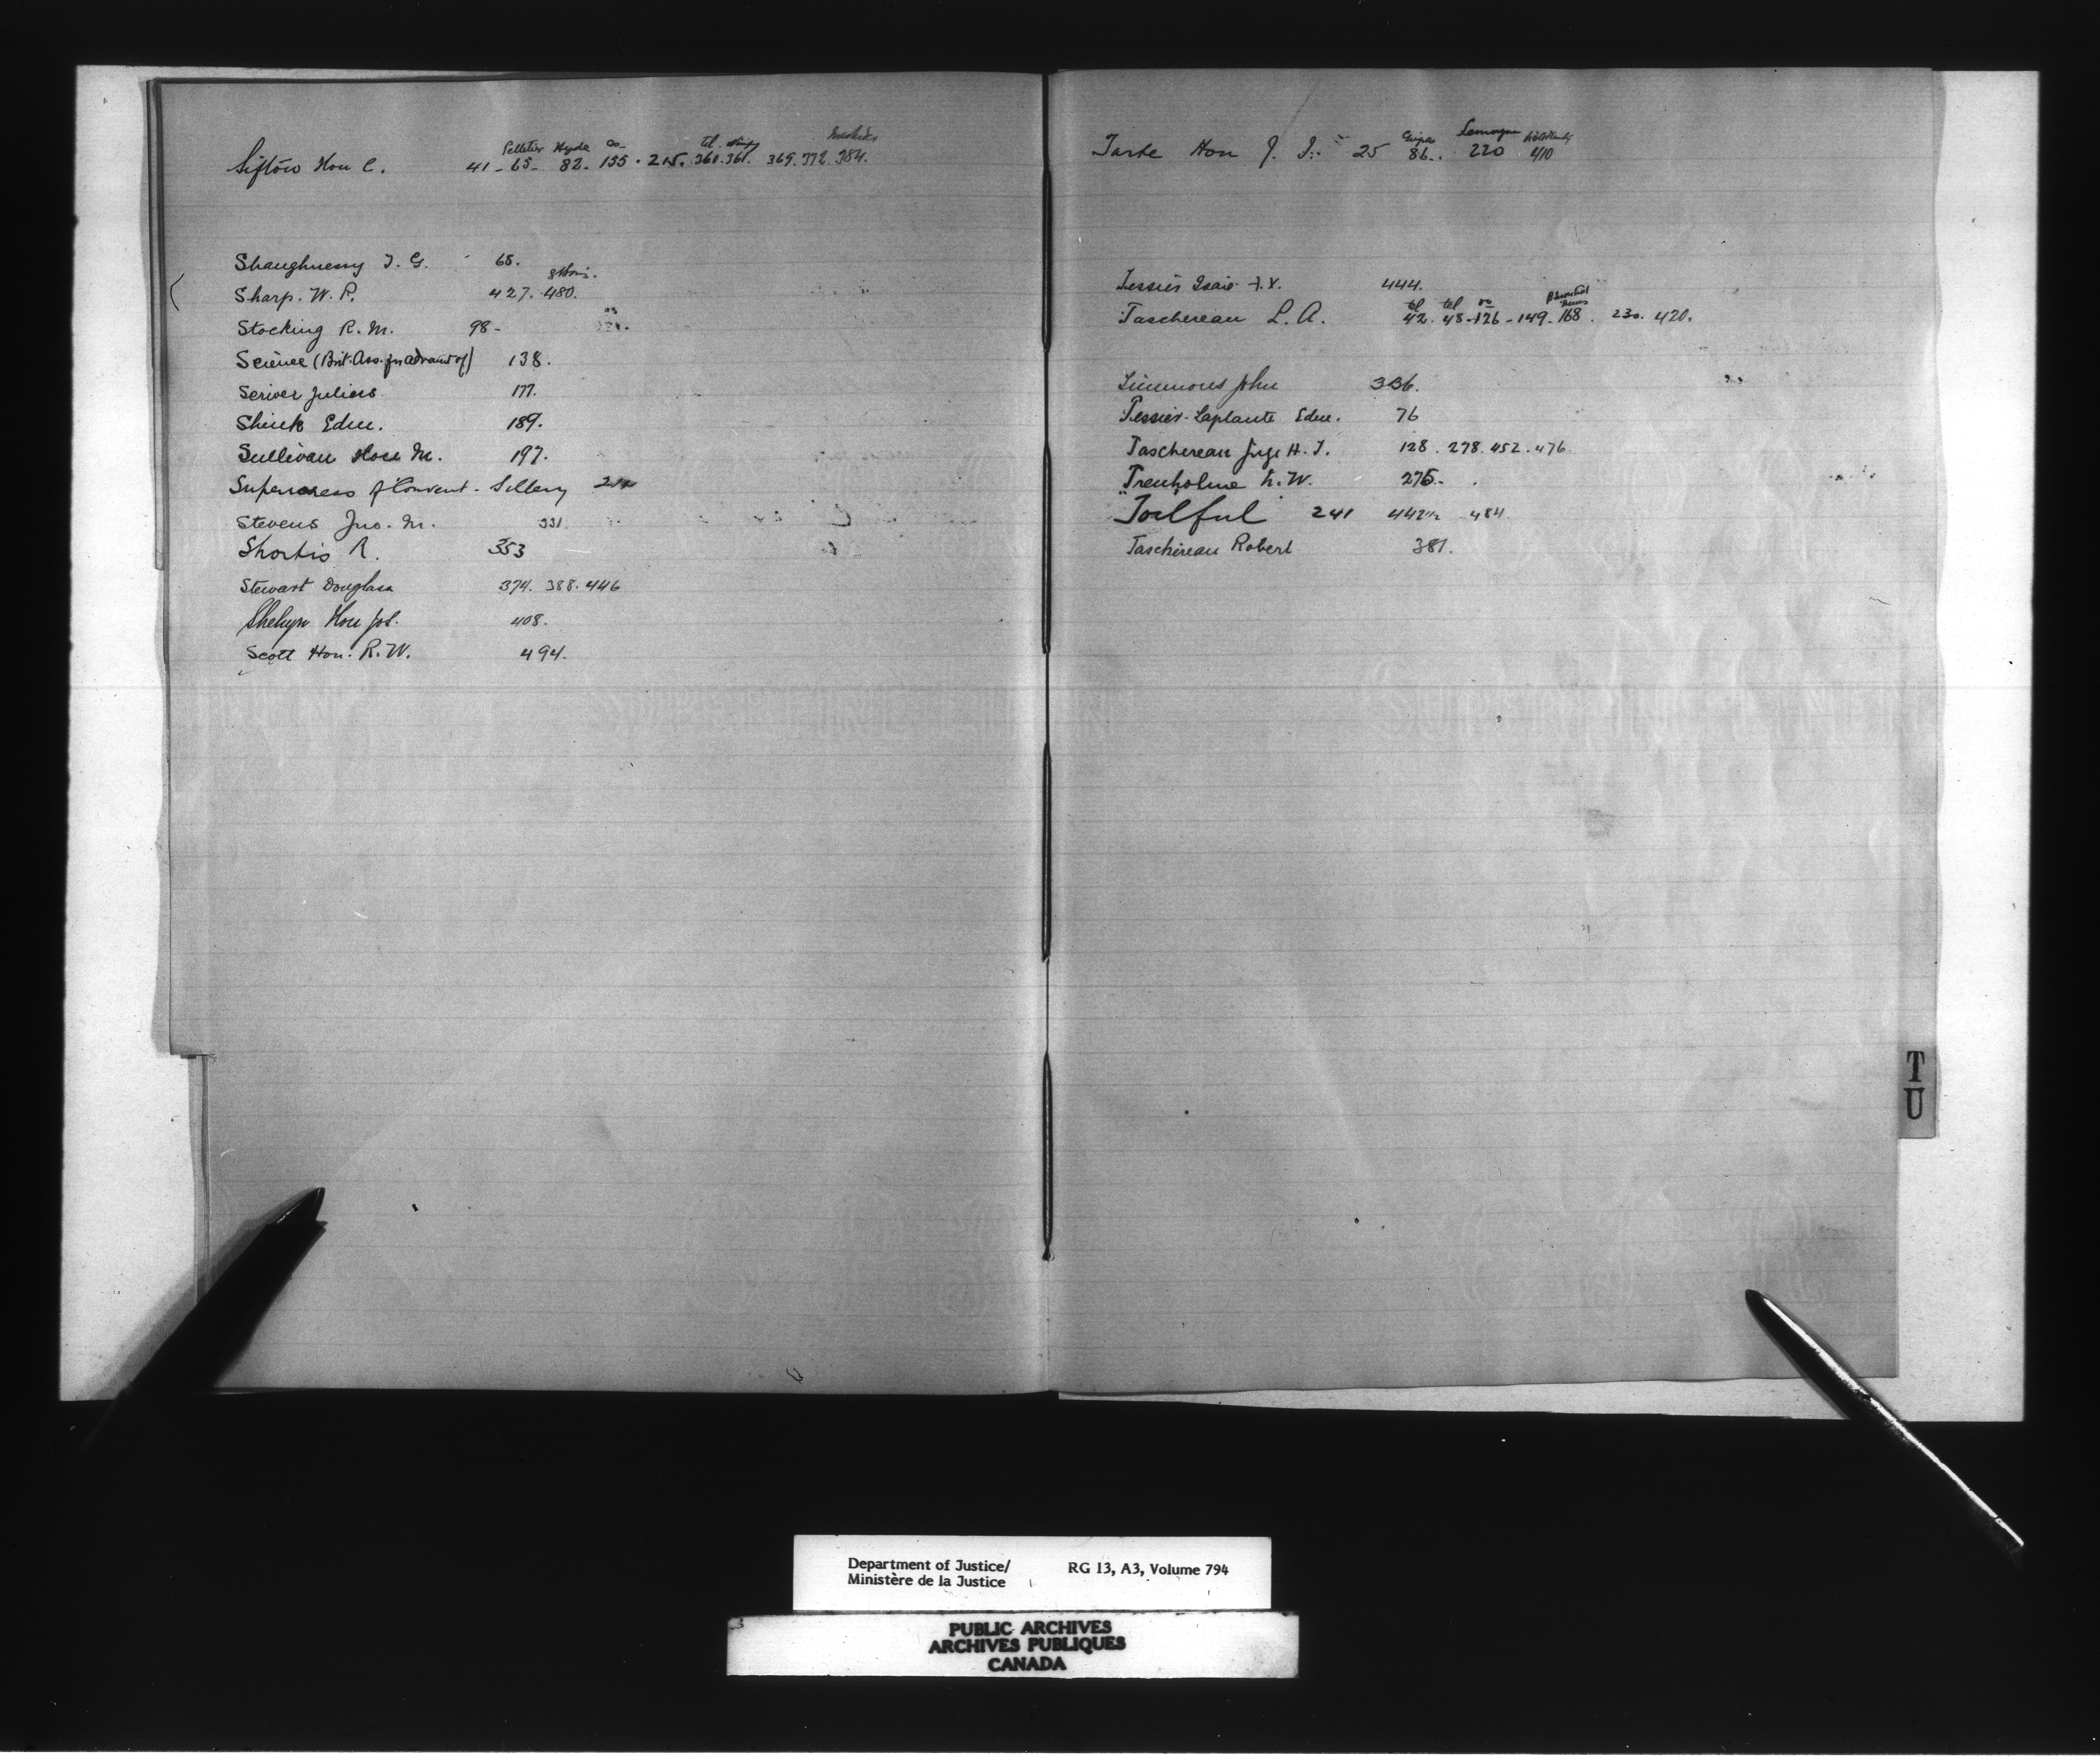 Pelletier Hyde do tel
Sifton Hon C. 41 - 65 - 82 - 155 - 215. 360. 361. 369. 372. 384.
Shaughnessy T. G. 68.
Sharp. W. P. 427. 480.
Stocking R. M. 98 -
Science (Brit. Ass. for advanct of) 138.
Scriver Julius 177.
Shink Edm. 189.
Sullivan Rose M. 197.
Superioress of Convent - Sillery
Stevens Jno. M. 331.
Shortis R. 353
Stewart Douglass 374. 388. 446
Shehyn Hon Jos. 408.
Scott Hon. R. W. 494.
Lemoyne
Tarte Hon J. I. 25 86. 220 410
Tessier Isaie 444.
tel tel do
Taschereau L. A. 42. 48 - 126 - 149 - 168. 230. 420.
Timmons John 336.
Tessier - Laplante Edm. 76
Taschereau Juge H. T. 128. 278. 452. 476.
Trenholme N. W. 275 -
241 484
Taschereau Robert 381.
T
U
Department of Justice/ RG 13, A3, Volume 794
Ministère de la Justice
PUBLIC ARCHIVES
ARCHIVES PUBLIQUES
CANADA